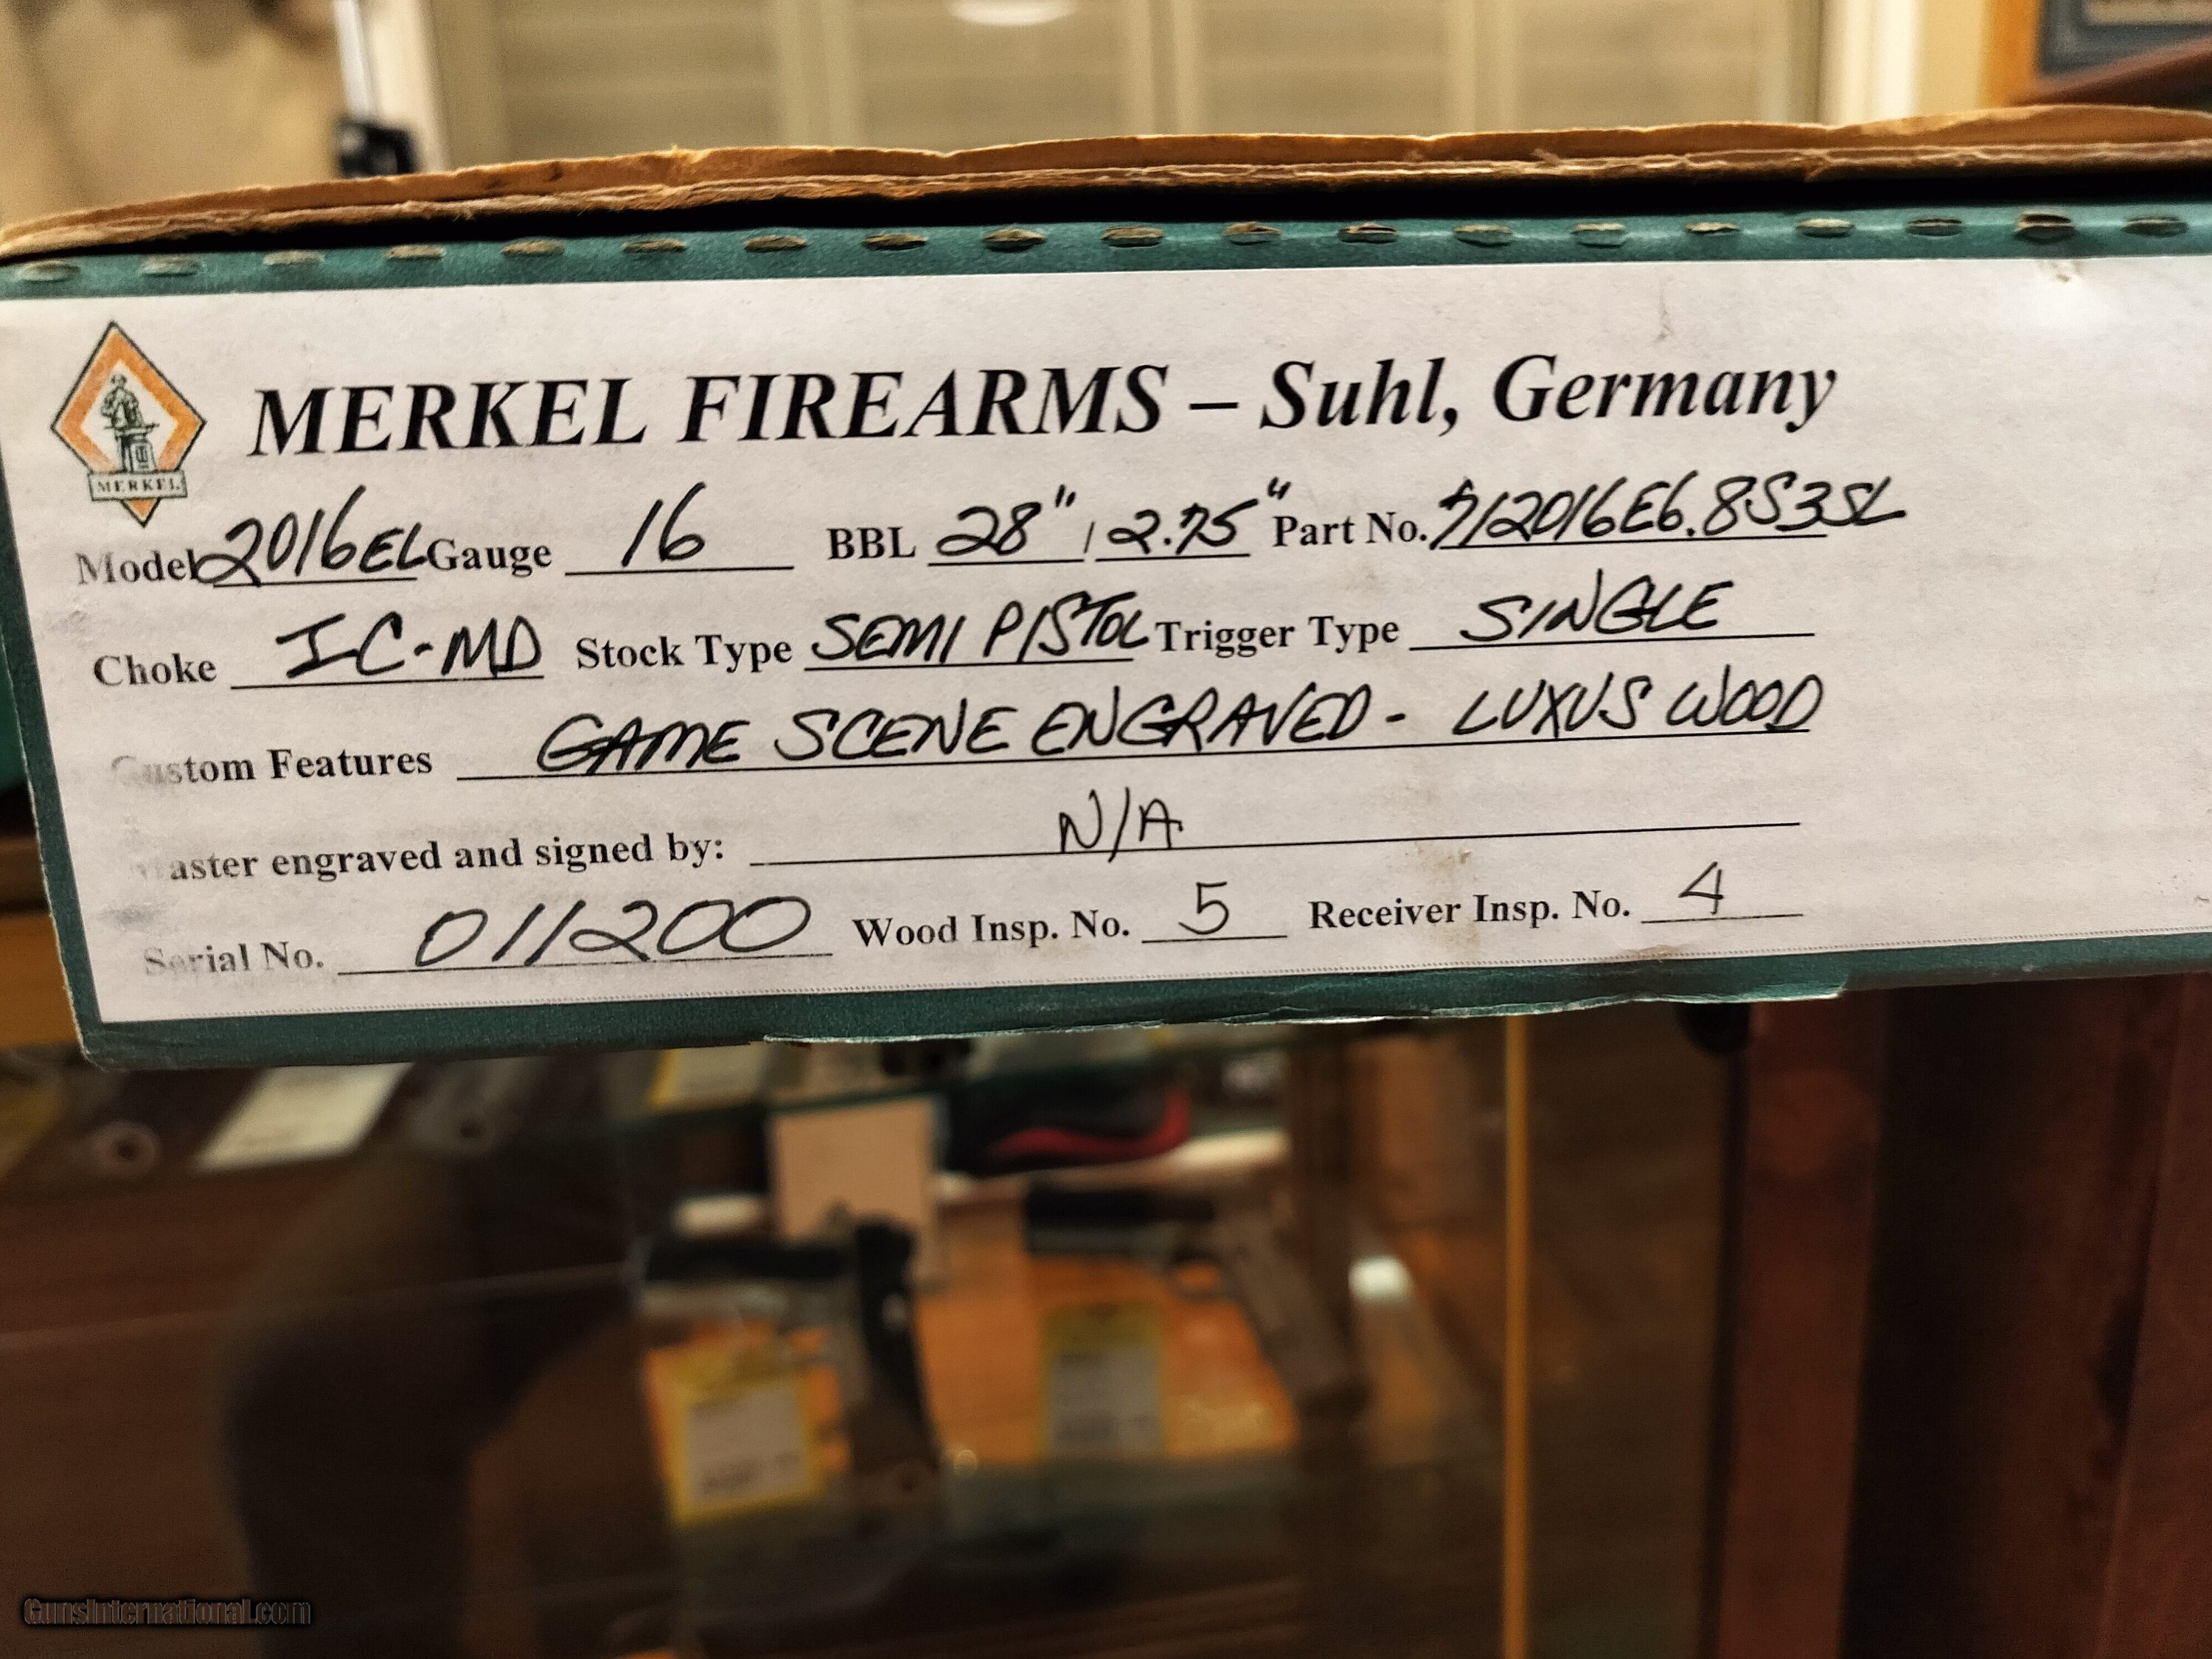 MERKEL FIREARMS – Suhl, Germany
MERKEL
Model 2016EL Gauge 16 BBL 28" / 2.75" Part No. 712016E6.8S3SL
Choke IC-MD Stock Type SEMI PISTOL Trigger Type SINGLE
Custom Features GAME SCENE ENGRAVED - LUXUS WOOD
aster engraved and signed by: N/A
Serial No. 011200 Wood Insp. No. 5 Receiver Insp. No. 4
GunsInternational.com